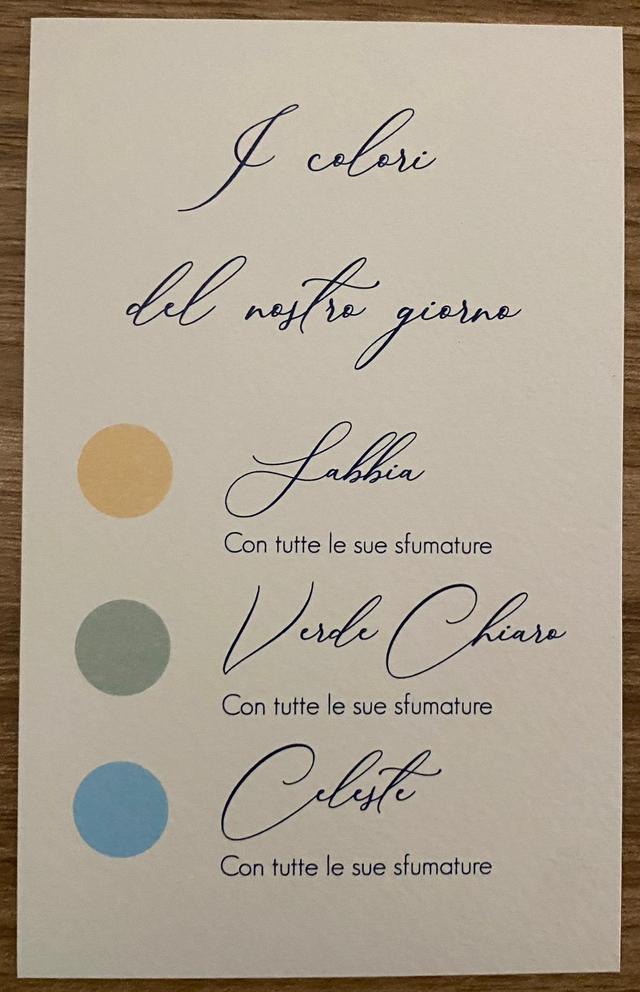 I colori
del nostro giorno
Sabbia
Con tutte le sue sfumature
Verde Chiaro
Con tutte le sue sfumature
Celeste
Con tutte le sue sfumature